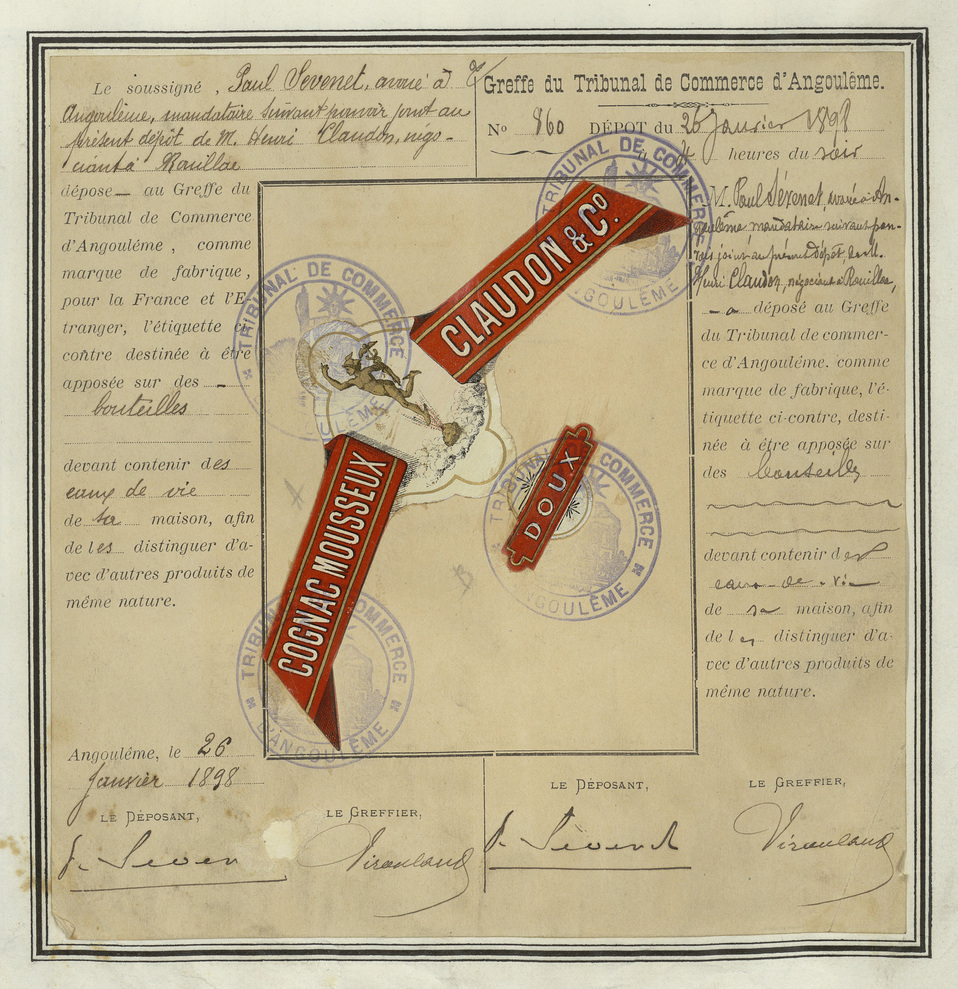 Le soussigné, Paul Sevenet, avoué à
Angoulême, mandataire suivant pouvoir joint au
présent dépôt de M. Henri Claudon, négo-
ciant à Rouillac
dépose au Greffe du
Tribunal de Commerce
d'Angoulême, comme
marque de fabrique,
pour la France et l'E-
tranger, l'étiquette ci-
contre destinée à être
apposée sur des
bouteilles
devant contenir des
eaux de vie
de sa maison, afin
de les distinguer d'a-
vec d'autres produits de
même nature.
Angoulême, le 26
Janvier 1898
LE DÉPOSANT,
LE GREFFIER,
P. Seven
Viroulaud
Greffe du Tribunal de Commerce d'Angoulême.
No 860 DÉPOT du 26 Janvier 1898
heures du soir
M. Paul Sévenet, avoué à An-
goulême, mandataire suivant pou-
voir joint au présent dépôt, de M.
Henri Claudon, négociant à Rouillac,
a déposé au Greffe
du Tribunal de commer-
ce d'Angoulême. comme
marque de fabrique, l'é-
tiquette ci-contre, desti-
née à être apposée sur
des bouteilles
devant contenir des
eaux-de-vie
de sa maison, afin
de les distinguer d'a-
vec d'autres produits de
même nature.
LE DÉPOSANT,
LE GREFFIER,
P. Sevenet
Viroulaud
CLAUDON & Co.
COGNAC MOUSSEUX
DOUX
TRIBUNAL DE COMMERCE
D'ANGOULÊME
TRIBUNAL DE COMMERCE
TRIBUNAL DE COMMERCE
D'ANGOULÊME
TRIBUNAL DE COMMERCE
D'ANGOULÊME
A
B